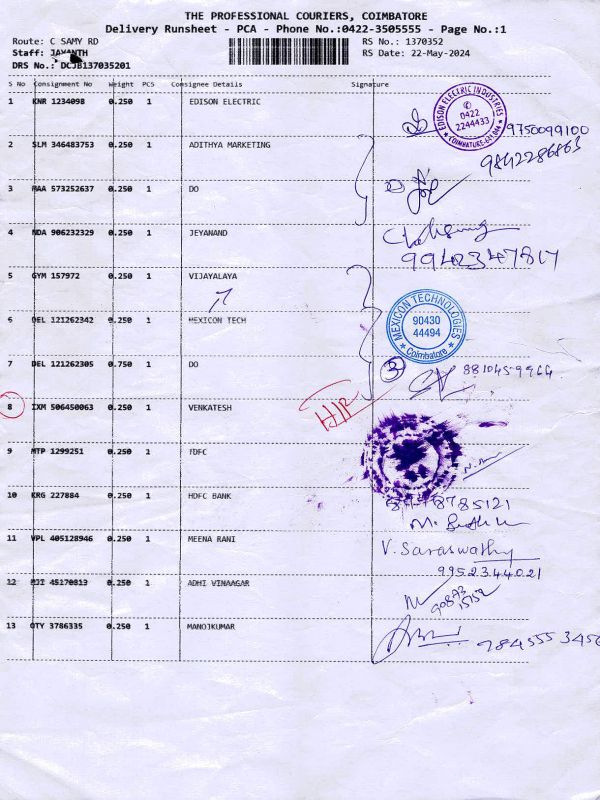 THE PROFESSIONAL COURIERS, COIMBATORE
Delivery Runsheet - PCA - Phone No.:0422-3505555 - Page No.:1
Route: C SAMY RD RS No.: 1370352
Staff: JAYANTH RS Date: 22-May-2024
DRS No.: DCJB137035201
S No Consignment No Weight PCS Consignee Details Signature
1 KNR 1234098 0.250 1 EDISON ELECTRIC
EDISON ELECTRIC INDUSTRIES
0422
2244433
9750099100
2 SLM 346483753 0.250 1 ADITHYA MARKETING
9842286863
3 MAA 573252637 0.250 1 DO
4 NDA 906232329 0.250 1 JEYANAND
9942347817
5 GYM 157972 0.250 1 VIJAYALAYA
6 DEL 121262342 0.250 1 MEXICON TECH
MEXICON TECHNOLOGIES
90430
44494
Coimbatore
7 DEL 121262305 0.750 1 DO
3
8 IXM 506450063 0.250 1 VENKATESH
9 MTP 1299251 0.250 1 IDFC
10 KRG 227884 0.250 1 HDFC BANK
11 VPL 405128946 0.250 1 MEENA RANI
V. Saraswathy
9952344021
12 45170813 0.250 1 ADHI VINAAGAR
13 OTY 3786335 0.250 1 MANOJKUMAR